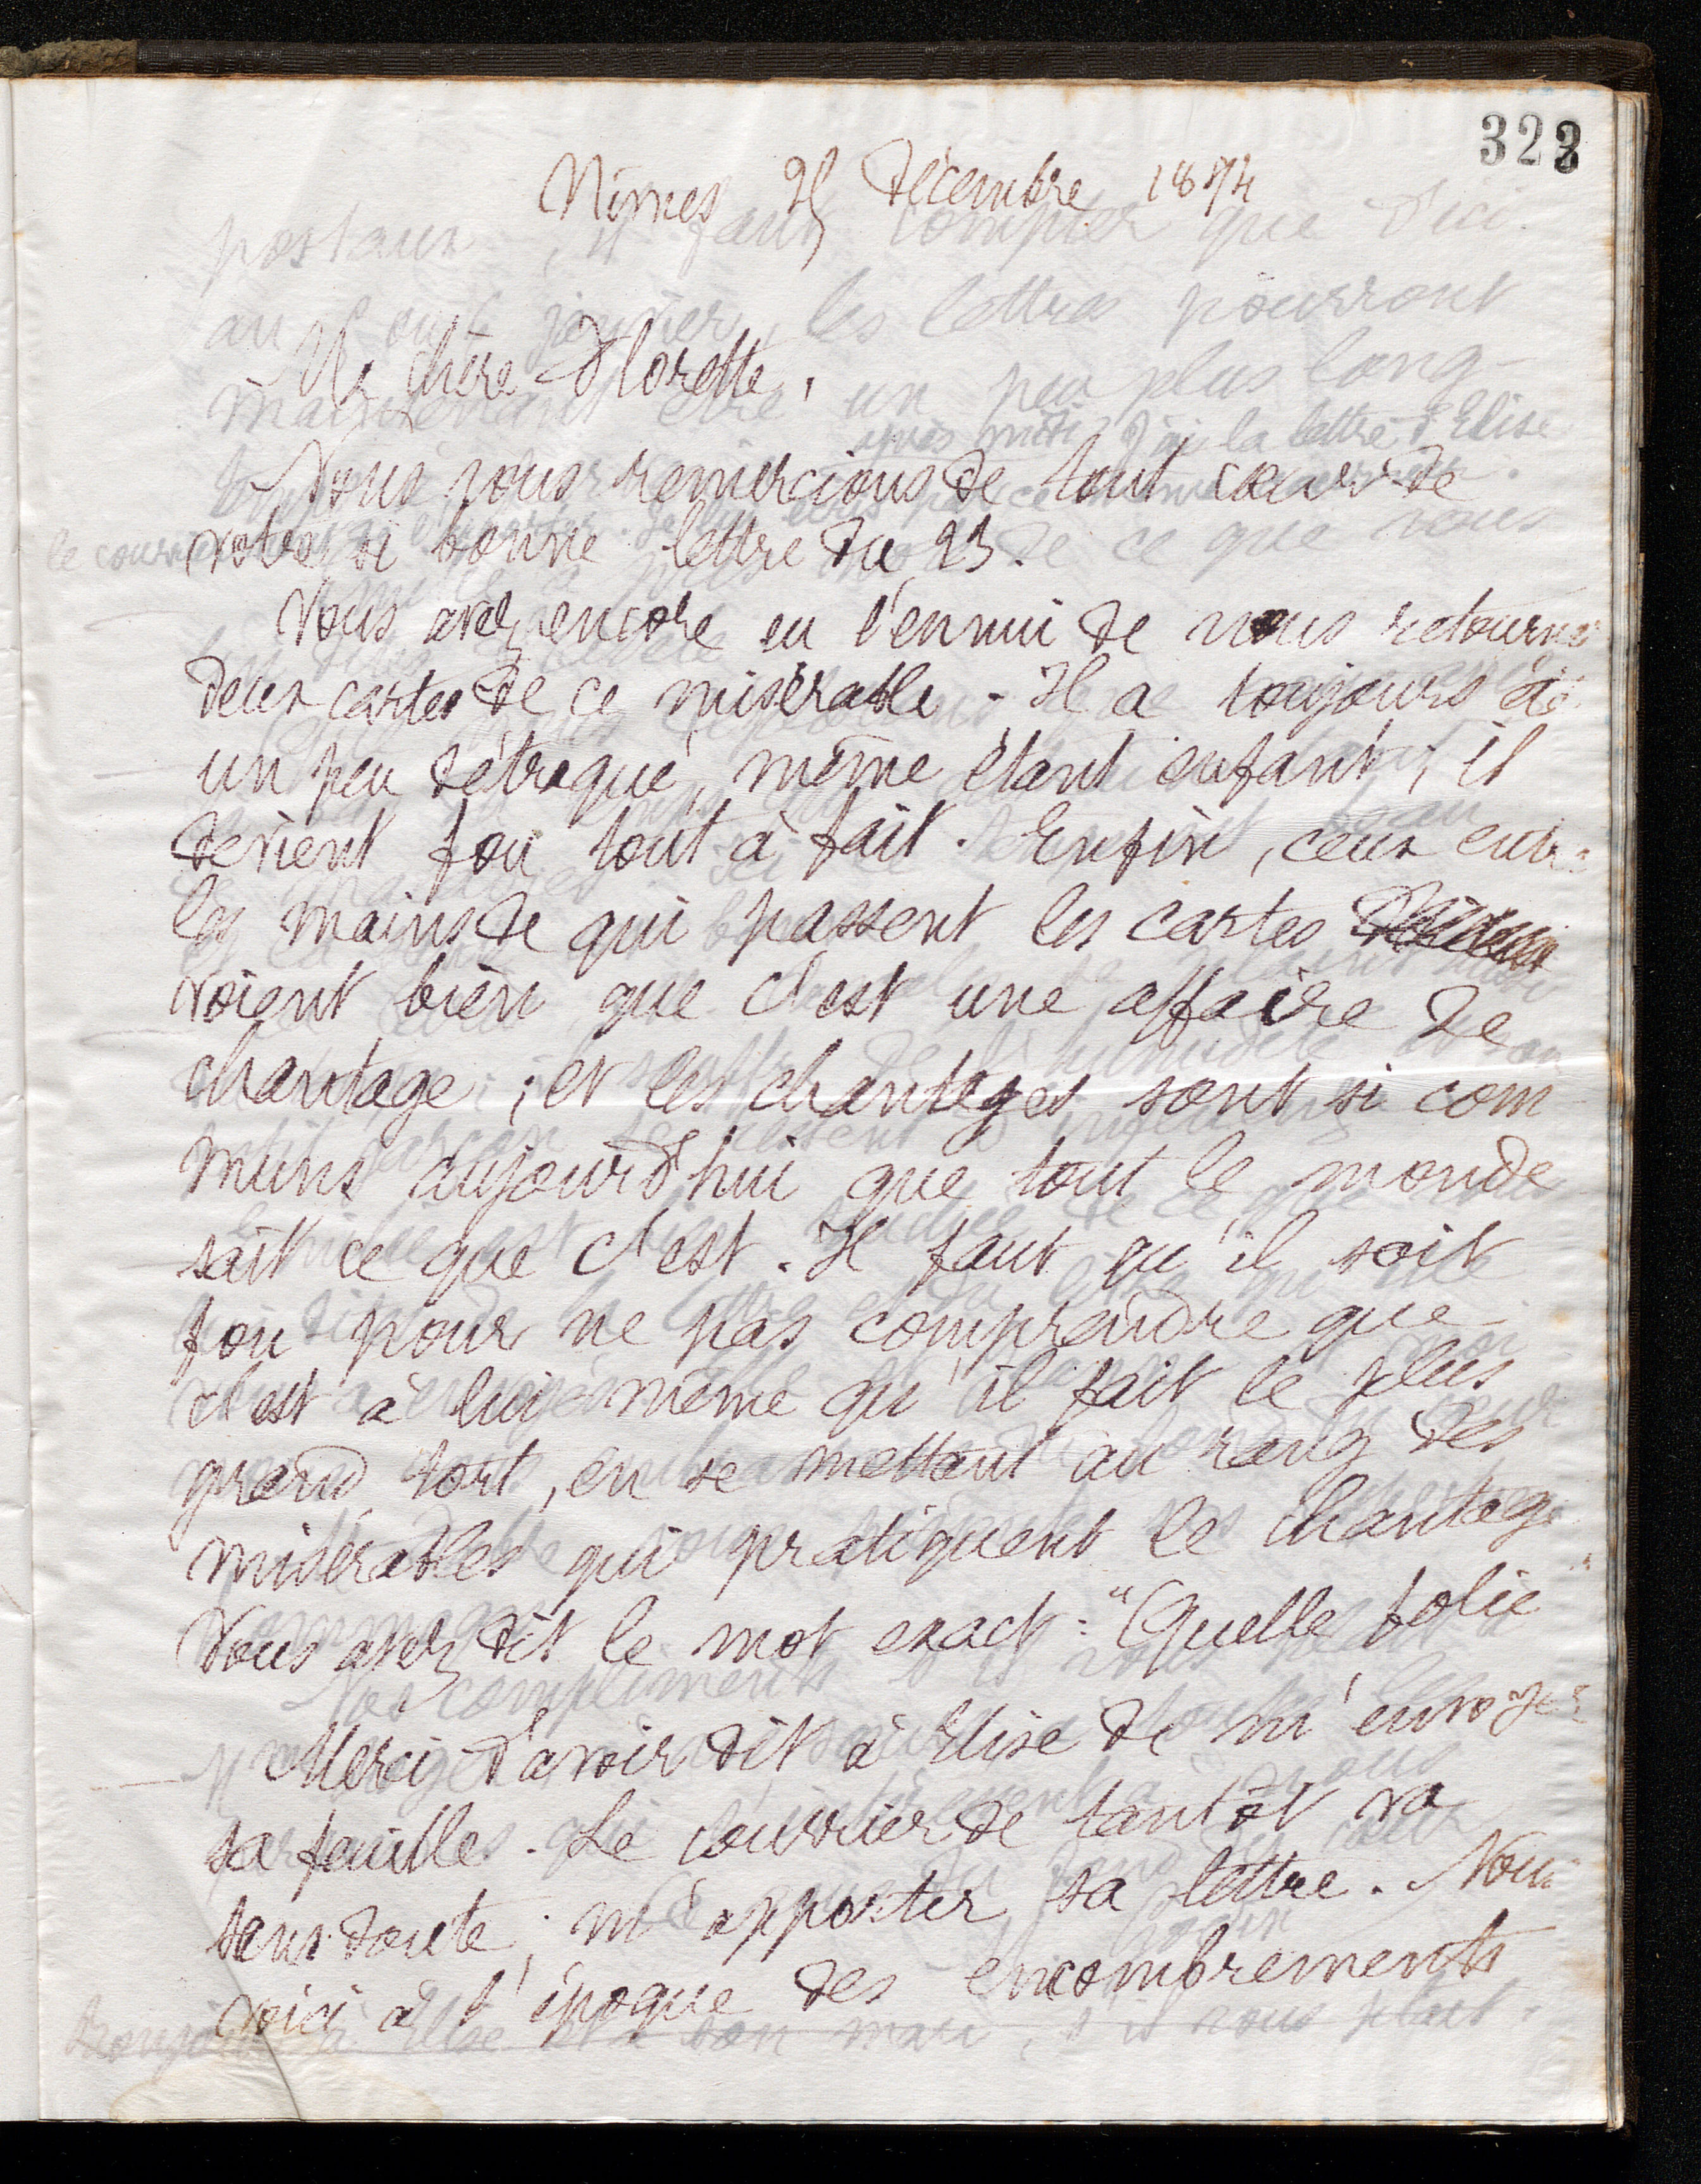 323
Nîmes 25 Décembre 1894
Ma chère Florette,
Nous vous remercions de tout coeur de
votre si bonne lettre du 23.
Vous avez encore eu l'ennui de nous retourner
deux cartes de ce misérable. Il a toujours été
un peu détraqué, même étant enfant ; il
devient fou tout à fait. Enfin, ceux entre
les mains de qui passent les cartes
voient bien que c'est une affaire de
chantage ; et les chantages sont si com
muns aujourd'hui que tout le monde
sait ce que c'est. Il faut qu'il soit
fou pour ne pas comprendre que
c'est à lui même qu'il fait le plus
grand tort, en se mettant au rang des
misérables qui pratiquent le chantage
Vous avez dit le mot exact : "Quelle folie
Merci d'avoir dit à Elise de m'envoyer
sa feuille. Le courrier de tantôt va
sans doute, m'apporter sa lettre. Nous
voici à l'époque des encombrements